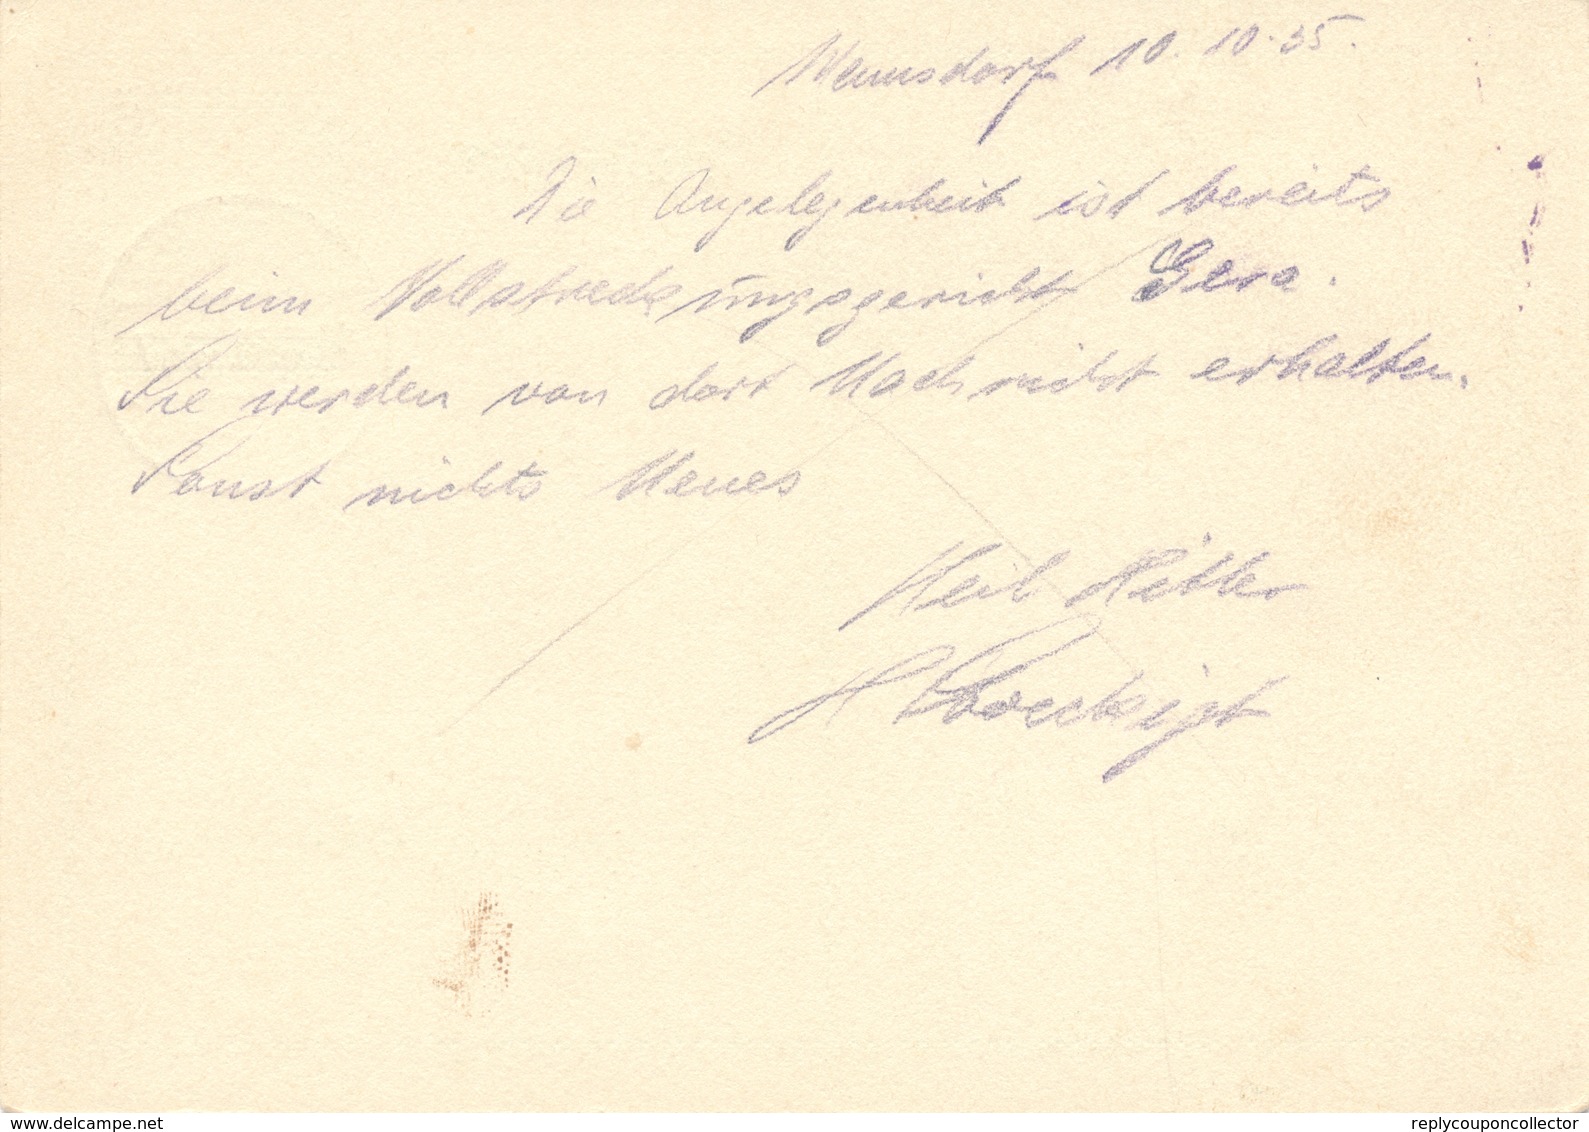 10.10.35.
Die Angelegenheit ist bereits
beim Vollstreckungsgericht Gera.
Sie werden von dort Nachricht erhalten.
Sonst nichts Neues
Heil Hitler
www.delcampe.net
replycouponcollector